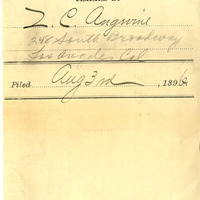 L. C. Angwine
348 South Broadway
Los Angeles Cal
Filed Aug 3rd, 1896